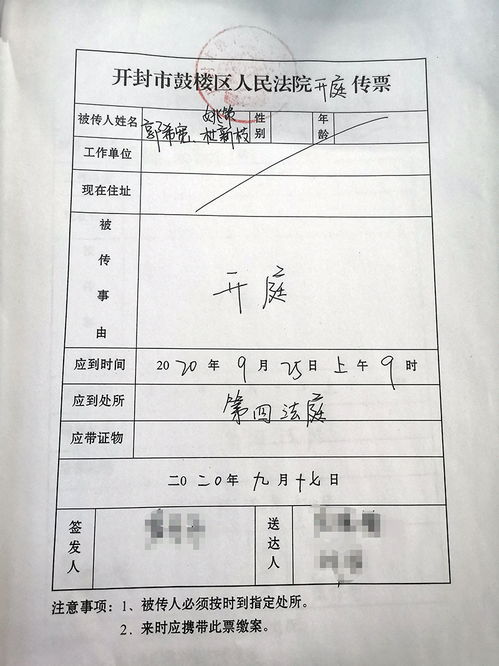 开封市鼓楼区人民法院开庭传票
被传人姓名 郭希宽、姚策、杜新枝 性别 年龄
工作单位
现在住址
被传事由 开庭
应到时间 2020年9月25日上午9时
应到处所 第四法庭
应带证物
二〇二〇年九月十七日
签发人 送达人
注意事项：1、被传人必须按时到指定处所。
2．来时应携带此票缴案。